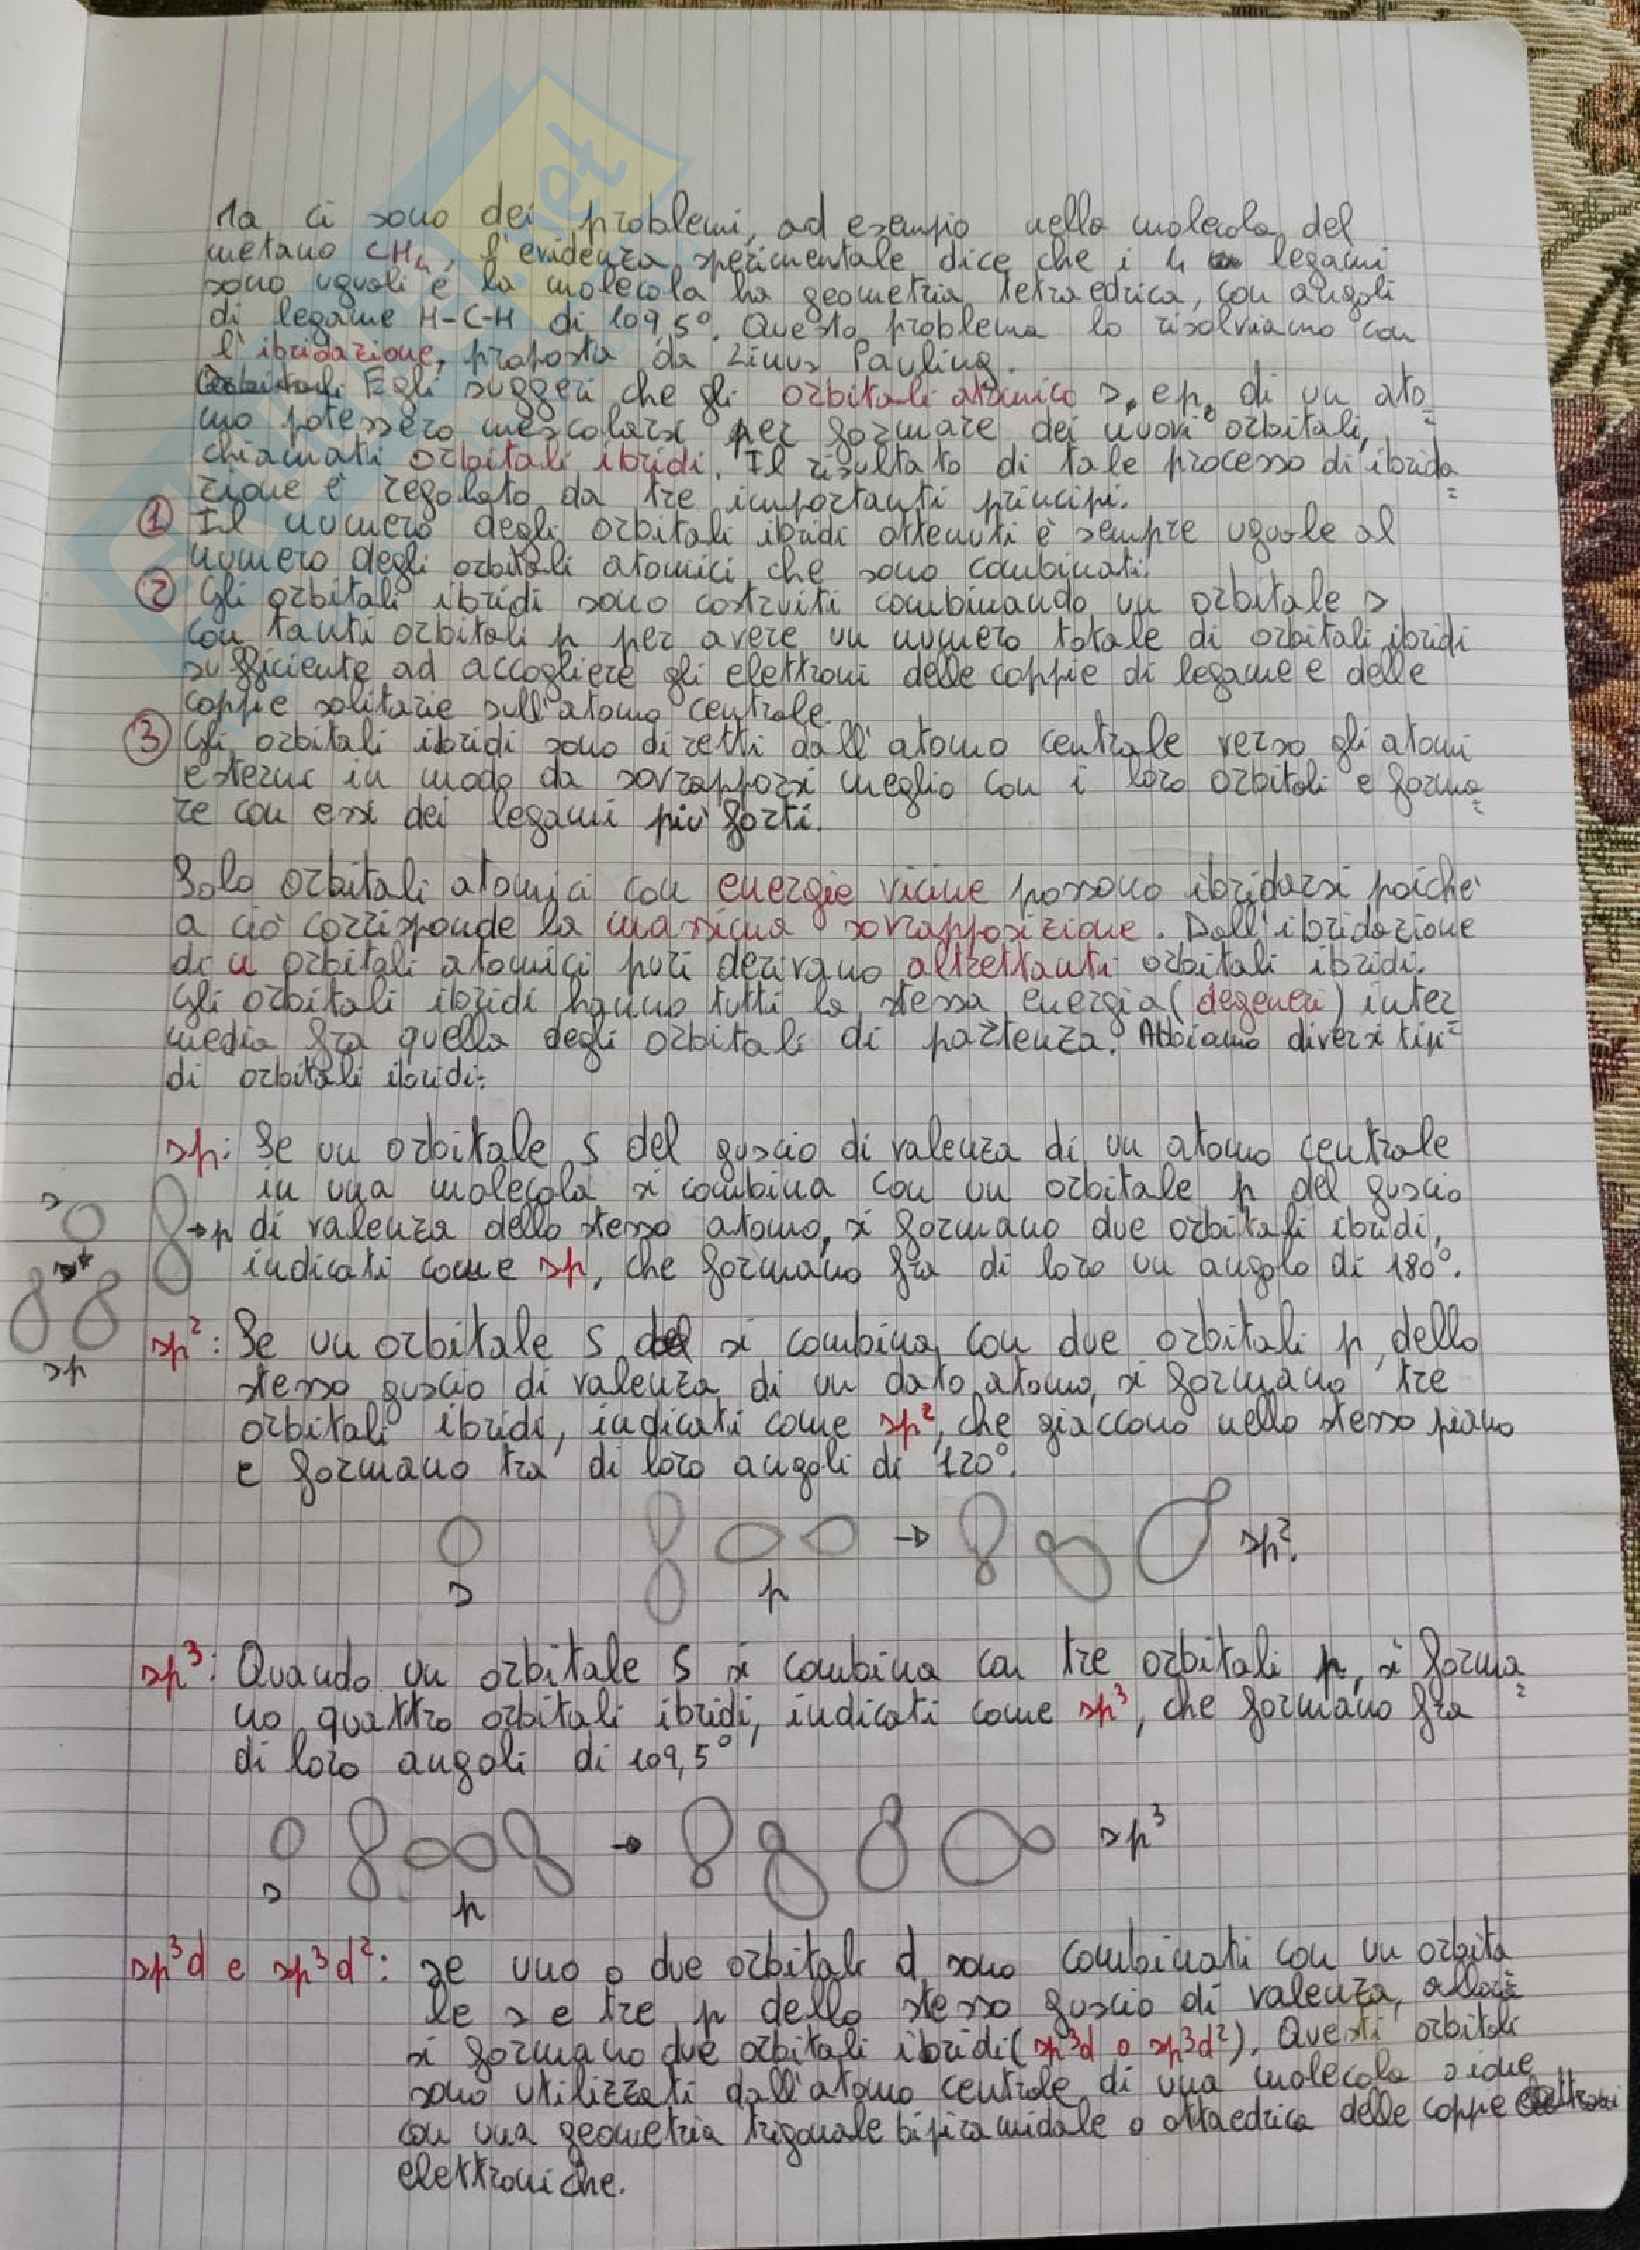 Ma ci sono dei problemi, ad esempio nella molecola del
metano CH4, l'evidenza sperimentale dice che i 4 legami
sono uguali e la molecola ha geometria tetraedrica, con angoli
di legame H-C-H di 109,5°. Questo problema lo risolviamo con
l'ibridazione, proposta da Linus Pauling.
Egli suggerì che gli orbitali atomico s e p di un ato=
mo potessero mescolarsi per formare dei nuovi orbitali,
chiamati orbitali ibridi. Il risultato di tale processo di ibrida=
zione è regolato da tre importanti principi.
① Il numero degli orbitali ibridi ottenuti è sempre uguale al
numero degli orbitali atomici che sono combinati.
② Gli orbitali ibridi sono costruiti combinando un orbitale s
con tanti orbitali p per avere un numero totale di orbitali ibridi
sufficiente ad accogliere gli elettroni delle coppie di legame e delle
coppie solitarie sull'atomo centrale.
③ Gli orbitali ibridi sono diretti dall'atomo centrale verso gli atomi
esterni in modo da sovrapporsi meglio con i loro orbitali e forma=
re con essi dei legami più forti.
Solo orbitali atomici con energie vicine possono ibridarsi poiché
a ciò corrisponde la massima sovrapposizione. Dall'ibridazione
di n orbitali atomici puri derivano altrettanti orbitali ibridi.
Gli orbitali ibridi hanno tutti la stessa energia (degeneri) inter=
media fra quella degli orbitali di partenza. Abbiamo diversi tipi
di orbitali ibridi:
sp: Se un orbitale s del guscio di valenza di un atomo centrale
in una molecola si combina con un orbitale p del guscio
s
→p di valenza dello stesso atomo, si formano due orbitali ibridi,
indicati come sp, che formano fra di loro un angolo di 180°.
sp
sp²: Se un orbitale s si combina con due orbitali p dello
stesso guscio di valenza di un dato atomo, si formano tre
orbitali ibridi, indicati come sp², che giacciono nello stesso piano
e formano tra di loro angoli di 120°.
→ sp².
s p
sp³: Quando un orbitale s si combina con tre orbitali p, si forma=
no quattro orbitali ibridi, indicati come sp³, che formano fra
di loro angoli di 109,5°
→ sp³
s p
sp³d e sp³d²: se uno o due orbitali d sono combinati con un orbita
le s e tre p dello stesso guscio di valenza, allora
si formano due orbitali ibridi (sp³d o sp³d²). Questi orbitali
sono utilizzati dall'atomo centrale di una molecola o ione
con una geometria trigonale bipiramidale o ottaedrica delle coppe
elettroniche.
.net